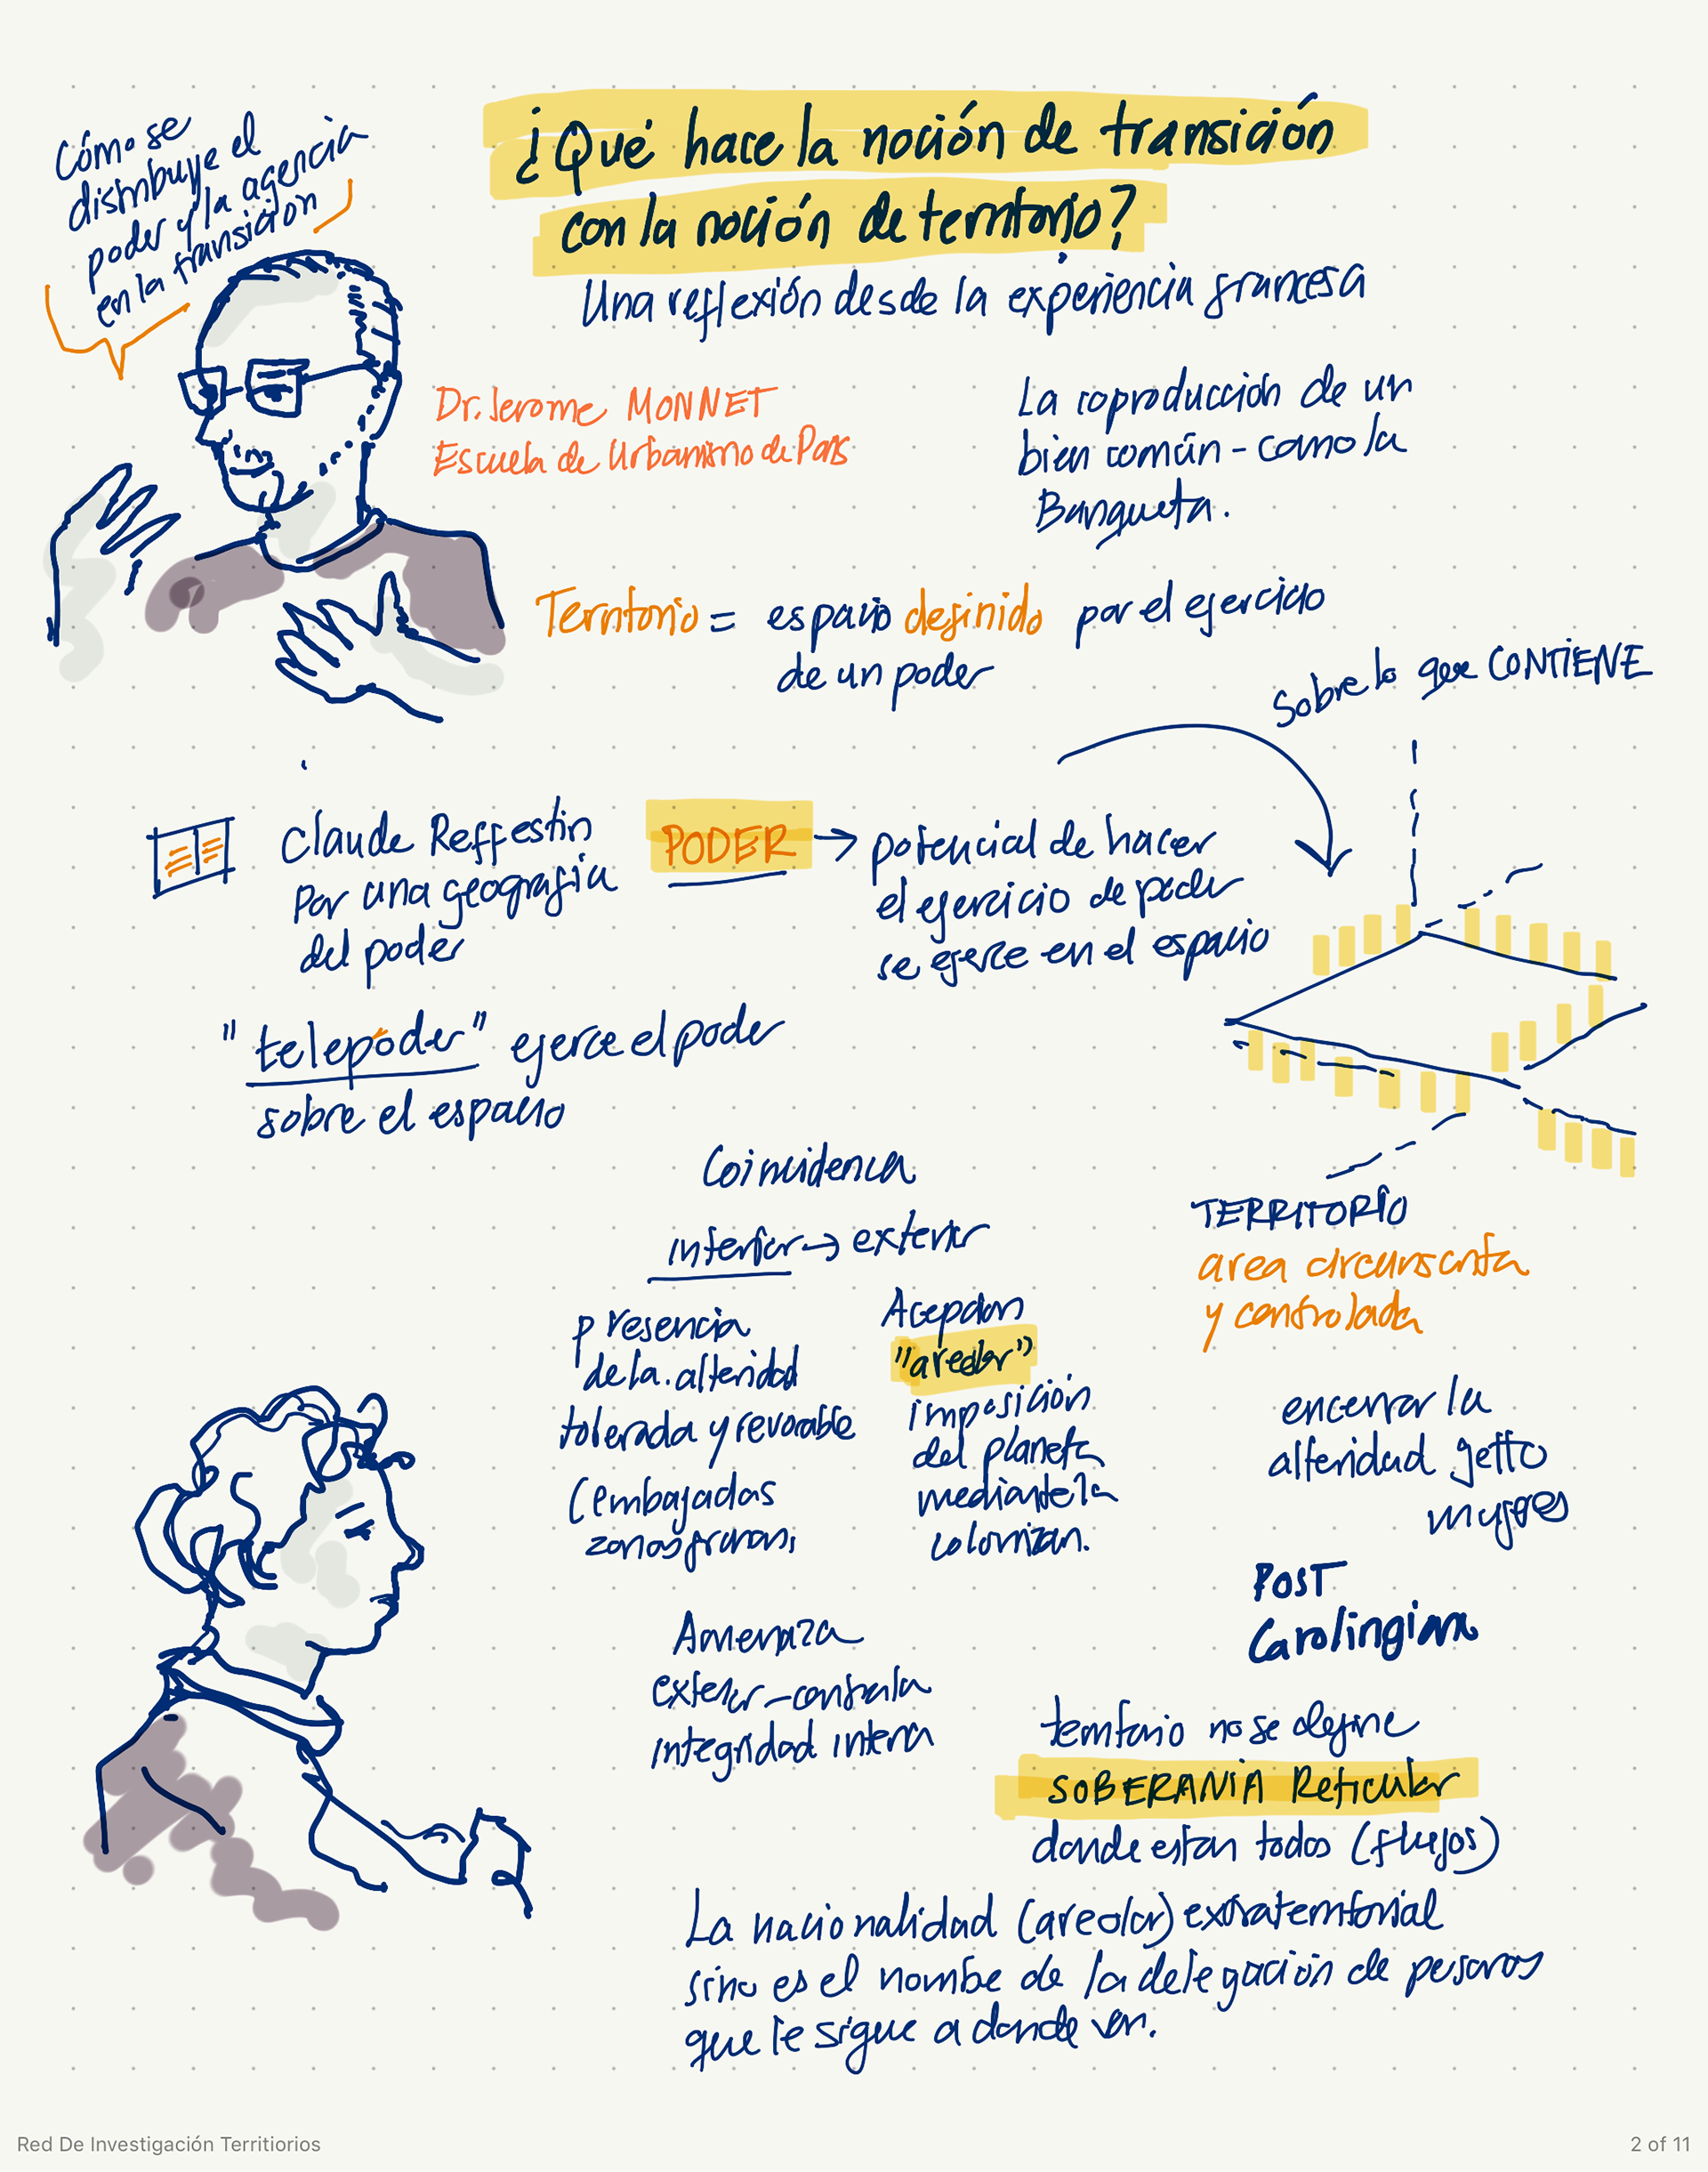 Cómo se
distribuye el
poder y la agencia
en la transición
¿Qué hace la noción de transición
con la noción de territorio?
Una reflexión desde la experiencia francesa
Dr. Jerome MONNET
Escuela de Urbanismo de París
La coproducción de un
bien común - como la
Banqueta.
Territorio = espacio definido por el ejercicio
de un poder
Sobre lo que CONTIENE
Claude Reffestin
Por una geografía
del poder
PODER → potencial de hacer
el ejercicio de poder
se ejerce en el espacio
"telepoder" ejerce el poder
sobre el espacio
Coincidencia
interior → exterior
presencia
de la alteridad
tolerada y revocable
(embajadas
zonas francas,
Acepción
"areolar"
imposición
del planeta
mediante la
colonizan.
TERRITORIO
area circunscrita
y controlada
encerrar la
alteridad getto
mujeres
POST
Carolingian
Amenaza
exterior - contra la
integridad interna
territorio no se define
SOBERANIA Reticular
donde estan todos (flujos)
La nacionalidad (areolar) extraterritorial
sino es el nombe de la delegación de
que le sigue a donde van.
Red De Investigación Territiorios
2 of 11